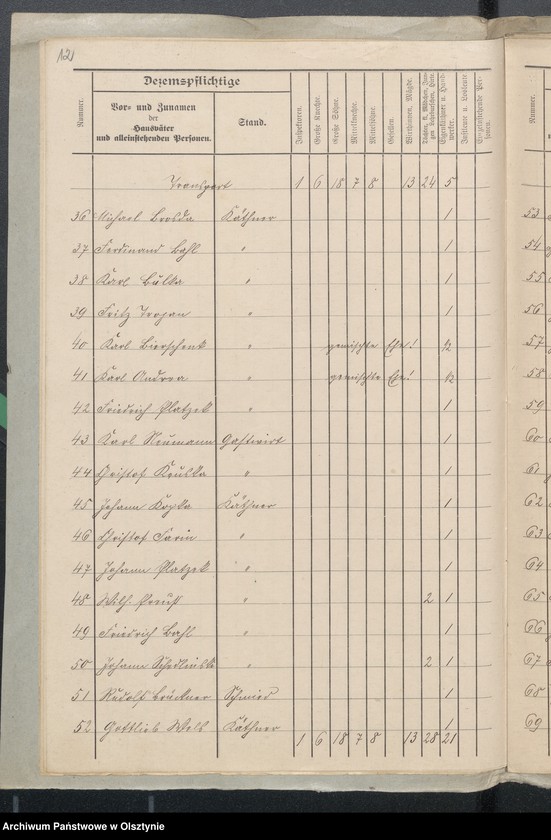 12
Dezemspflichtige
Nummer.
Vor- und Zunamen
der
Hausväter
und alleinstehenden Personen.
Stand.
Inspektoren.
Große Knechte.
Große Söhne.
Mittelknechte.
Mittelsöhne.
Gesellen.
Wirthinnen, Mägde.
Eigenkäthner u. Handwerker.
Instleute u. Losleute.
Nummer.
Transport 1 6 18 7 8 13 24 5
36 Michael Brosda Käthner 1
37 Ferdinand Bahl " 1
38 Karl Bülka " 1
39 Fritz Trojan " 1
40 Karl Bierschenk " gemischte Ehe! ½
41 Karl Andrea " gemischte Ehe! ½
42 Friedrich Platzek " 1
43 Karl Neumann Gastwirt 1
44 Christof " 1
45 Johann Kopka Käthner 1
46 Christof " 1
47 Johann Platzek " 1
48 Wilh. Preuß " 2 1
49 Friedrich Bahl " 1
50 Johann " 2 1
51 Rudolf Brückner Schmied 1
52 Gottlieb Käthner 1
1 6 18 7 8 13 28 21
53
54
55
56
57
58
59
60
61
62
63
64
65
66
67
68
69
Archiwum Państwowe w Olsztynie